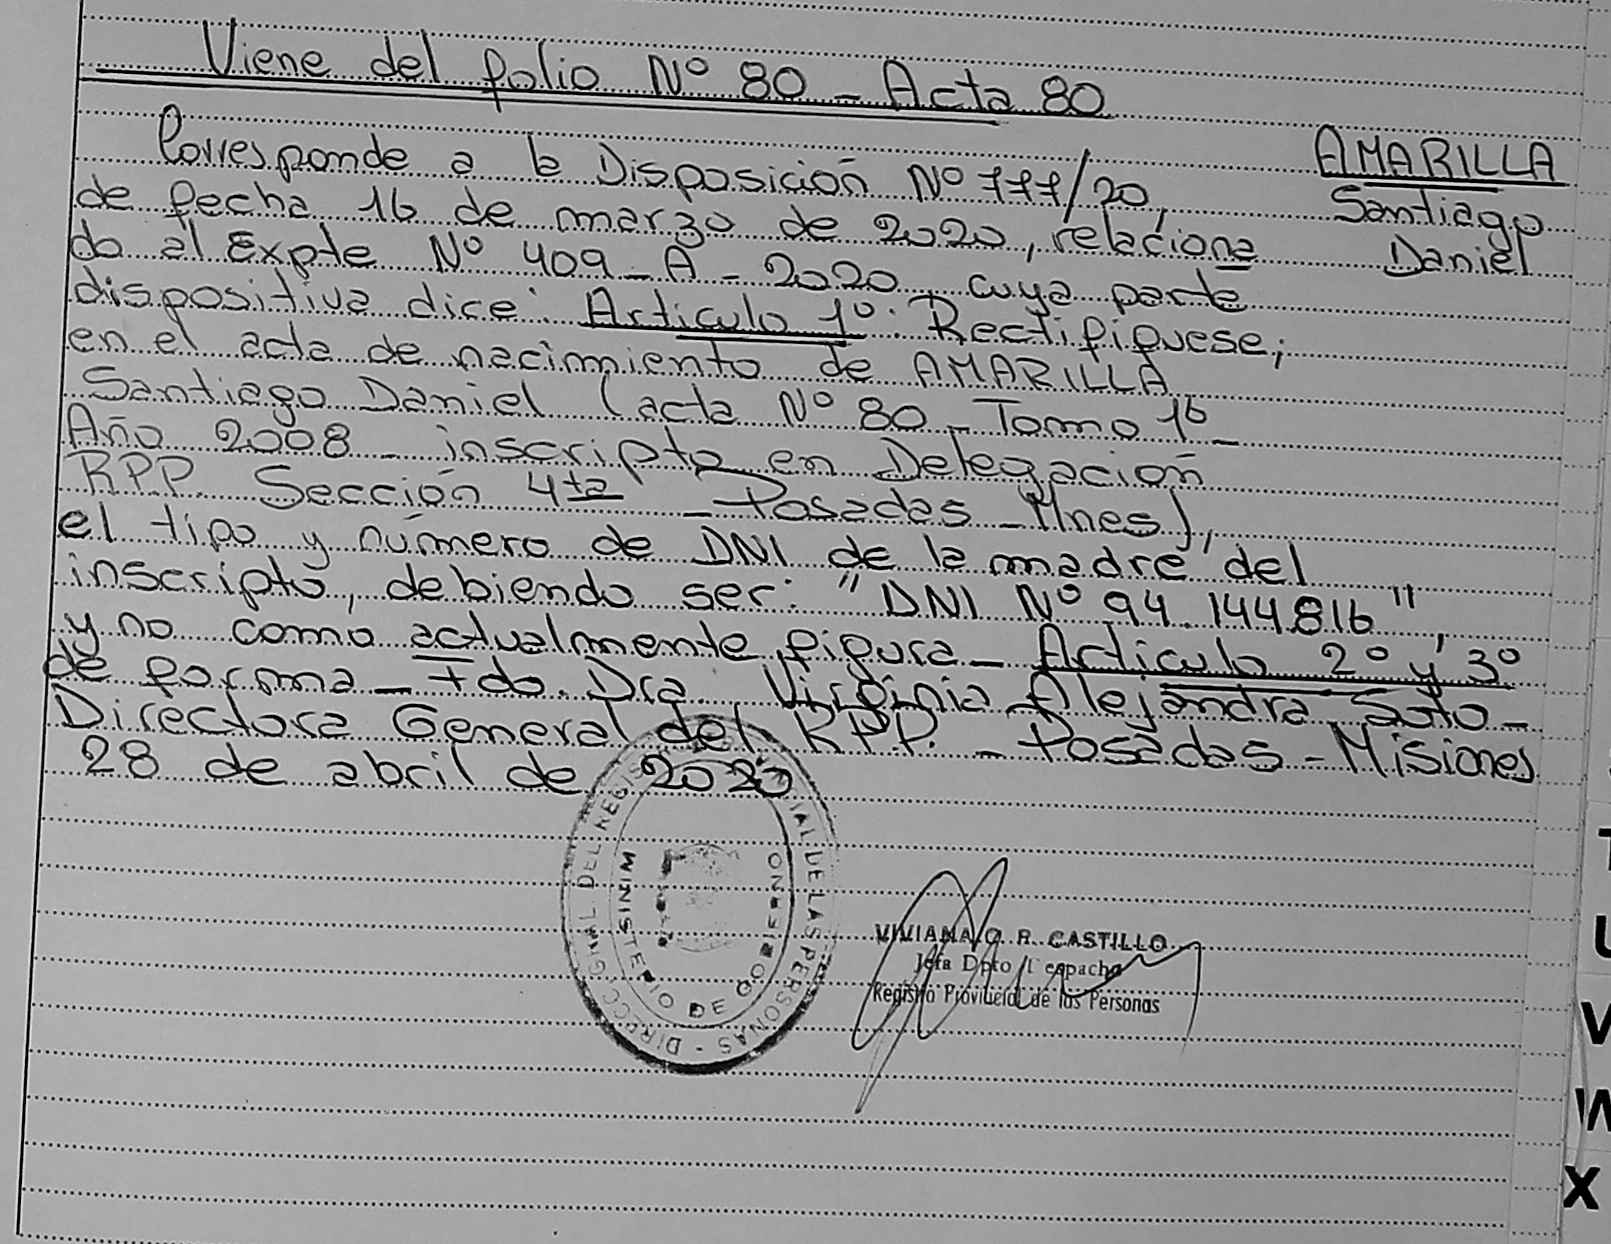 Viene del folio Nº 80 - Acta 80
Corresponde a la Disposición Nº 777/20,
de fecha 16 de marzo de 2020, relaciona
do al Expte Nº 409-A-2020 cuya parte
dispositiva dice: Articulo 1º: Rectifiquese;
en el acta de nacimiento de AMARILLA
Santiago Daniel (acta Nº 80 - Tomo 1º -
Año 2008 - inscripta en Delegación
RPP. Sección 4ta - Posadas - Mnes),
el tipo y número de DNI de la madre del
inscripto, debiendo ser: "DNI Nº 94.144.816",
y no como actualmente figura - Articulo 2º y 3º
de forma - Fdo. Dra Virginia Alejandra Soto -
Directora General del RPP. - Posadas - Misiones
28 de abril de 2020
AMARILLA
Santiago
Daniel
DEL REGIS IAL DE LAS PERSONAS - DIRECC
MINISTE IO DE GOBIERNO
VIVIANA G. R. CASTILLO
Jefa Dpto Despacho
Registro Provincial de las Personas
U
V
W
X